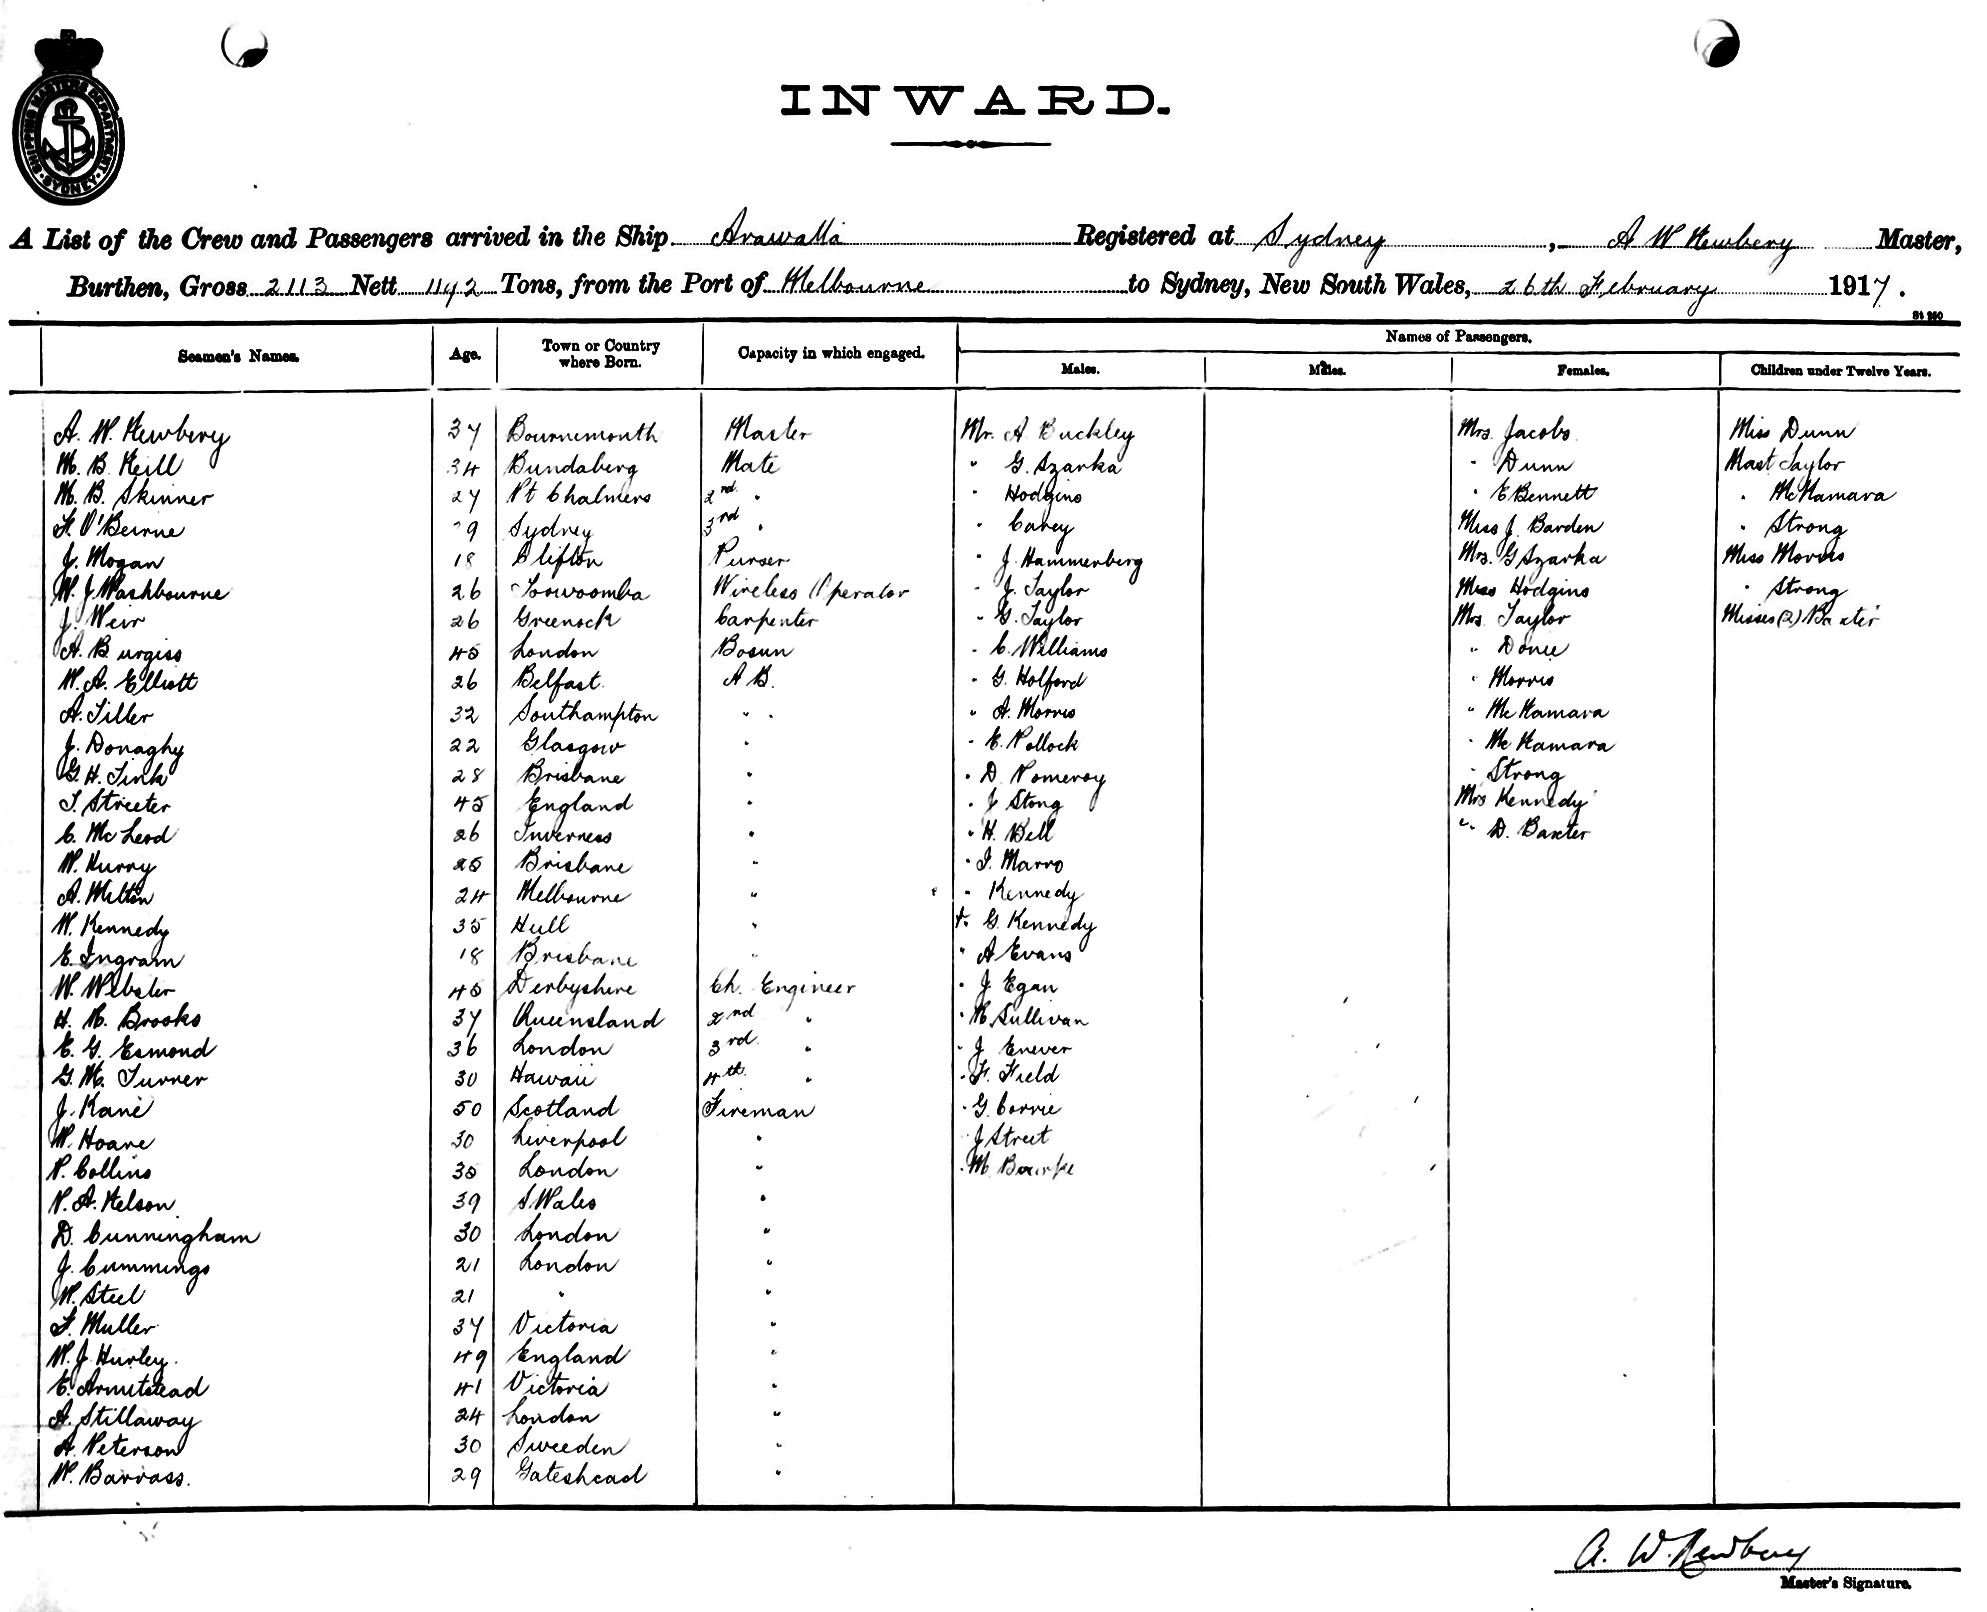 SHIPPING MASTERS DEPARTMENT SYDNEY
INWARD.
A List of the Crew and Passengers arrived in the Ship Arawatta Registered at Sydney, A W Newbery Master,
Burthen, Gross 2113 Nett 1142 Tons, from the Port of Melbourne to Sydney, New South Wales, 26th February 1917.
Seamen's Names. Age. Town or Country where Born. Capacity in which engaged. Names of Passengers.
Males. Males. Females. Children under Twelve Years.
A. W. Newbery 37 Bournemouth Master Mr. A Buckley Mrs. Jacobs Miss Dunn
M. B. Neill 34 Bundaberg Mate " G. Szarka " Dunn Mast Taylor
M. B. Skinner 27 Pt Chalmers 2nd " " Hodgins " E Bennett " McNamara
F. O'Beirne 9 Sydney 3rd " " Carey Miss J. Barden " Strong
J. Mogan 18 Clifton Purser " J. Hammerberg Mrs. G Szarka Miss Morris
W. J. Washbourne 26 Toowoomba Wireless Operator " J. Taylor Miss Hodgins " Strong
J. Weir 26 Greenock Carpenter " G. Taylor Mrs Taylor Misses (2) Baxter
A. Burgiss 45 London Bosun " C. Williams "
W. A. Elliott 26 Belfast A B. " G. Holford " Morris
A. Tiller 32 Southampton " " " A. Morris " McNamara
J. Donaghy 22 Glasgow " " E. Pollock " McNamara
G. H. Tink 28 Brisbane " " D. Pomeroy " Strong
T. Streeter 45 England " " J Stong Mrs Kennedy
C. McLeod 26 Inverness " " H. Bell " D. Baxter
W. Hurry 25 Brisbane " " J. Marro
A. Melton 24 Melbourne " " Kennedy
W. Kennedy 35 Hull " " G. Kennedy
E. Ingram 18 Brisbane " " A Evans
W. Webster 45 Derbyshire Ch. Engineer " J. Egan
H. N. Brooks 37 Queensland 2nd " " Sullivan
E. G. Esmond 36 London 3rd " " J Enever
G. M. Turner 30 Hawaii 4th " " F. Field
J. Kane 50 Scotland Fireman " G. Corrie
W. Hoare 30 Liverpool " " J Street
P. Collins 35 London " " M. Bourke
P. A. Nelson 39 S. Wales "
D. Cunningham 30 London "
J. Cummings 21 London "
W. Steel 21 " "
F. Muller 37 Victoria "
W. J. Hurley. 49 England "
E. Armitstead 41 Victoria "
A. Stillaway 24 London "
A. Peterson 30 Sweeden "
W. Barrass. 29 Gateshead "
A. W. Newbery
Master's Signature.